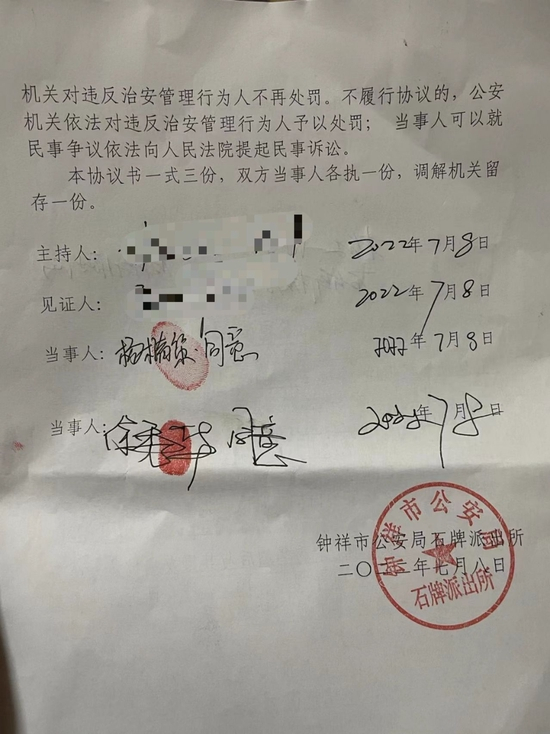 机关对违反治安管理行为人不再处罚。不履行协议的，公安
机关依法对违反治安管理行为人予以处罚； 当事人可以就
民事争议依法向人民法院提起民事诉讼。
本协议书一式三份，双方当事人各执一份，调解机关留
存一份。
主持人： 2022年7月8日
见证人： 2022年7月8日
当事人：杨 同意 2022年7月8日
当事人：徐 同意 2022年7月8日
钟祥市公安局石牌派出所
二〇二二年七月八日
钟祥市公安局
石牌派出所